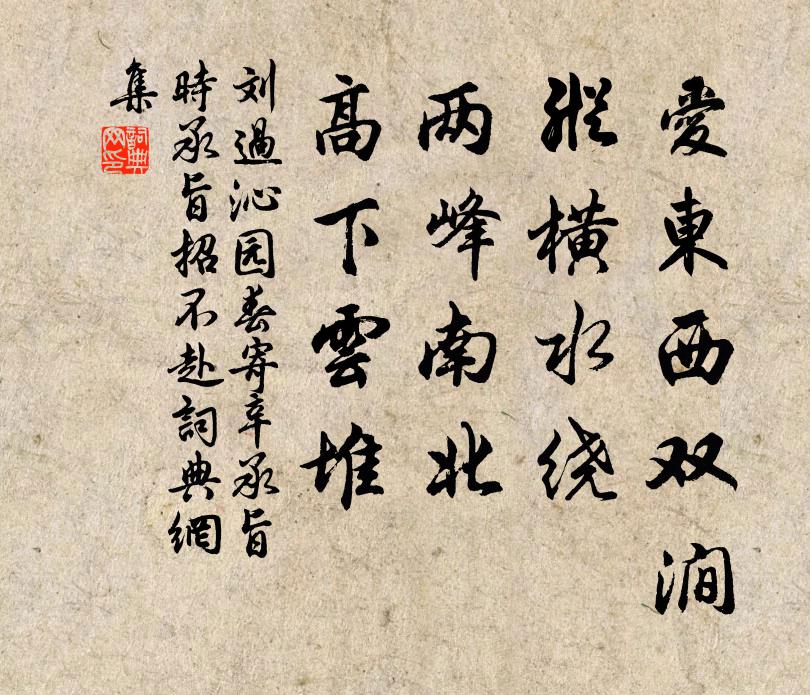 愛東西双澗
縱横水绕
两峰南北
高下雲堆
刘過沁园春寄辛承旨
時承旨招不赴詞典網
集
詞典网印